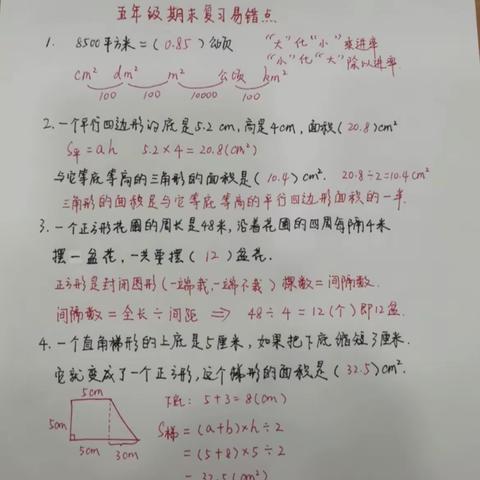 五年级期末复习易错点
1. 8500平方米=(0.85)公顷 "大"化"小"乘进率
"小"化"大"除以进率.
cm² dm² m² 公顷 km²
100 100 10000 100
2.一个平行四边形的底是5.2cm,高是4cm,面积(20.8)cm²
S平=ah 5.2×4=20.8(cm²)
与它等底等高的三角形的面积是(10.4)cm². 20.8÷2=10.4cm²
三角形的面积是与它等底等高的平行四边形面积的一半.
3.一个正方形花圃的周长是48米,沿着花圃的四周每隔4米
摆一盆花,一共要摆(12)盆花.
正方形是封闭图形(一端栽,一端不栽)棵数=间隔数.
间隔数=全长÷间距 ⇒ 48÷4=12(个)即12盆.
4.一个直角梯形的上底是5厘米,如果把下底缩短3厘米.
它就变成了一个正方形,这个梯形的面积是(32.5)cm².
5cm 下底: 5+3=8(cm)
5cm S梯=(a+b)×h÷2
5cm 3cm =(5+8)×5÷2
=32.5(cm²)